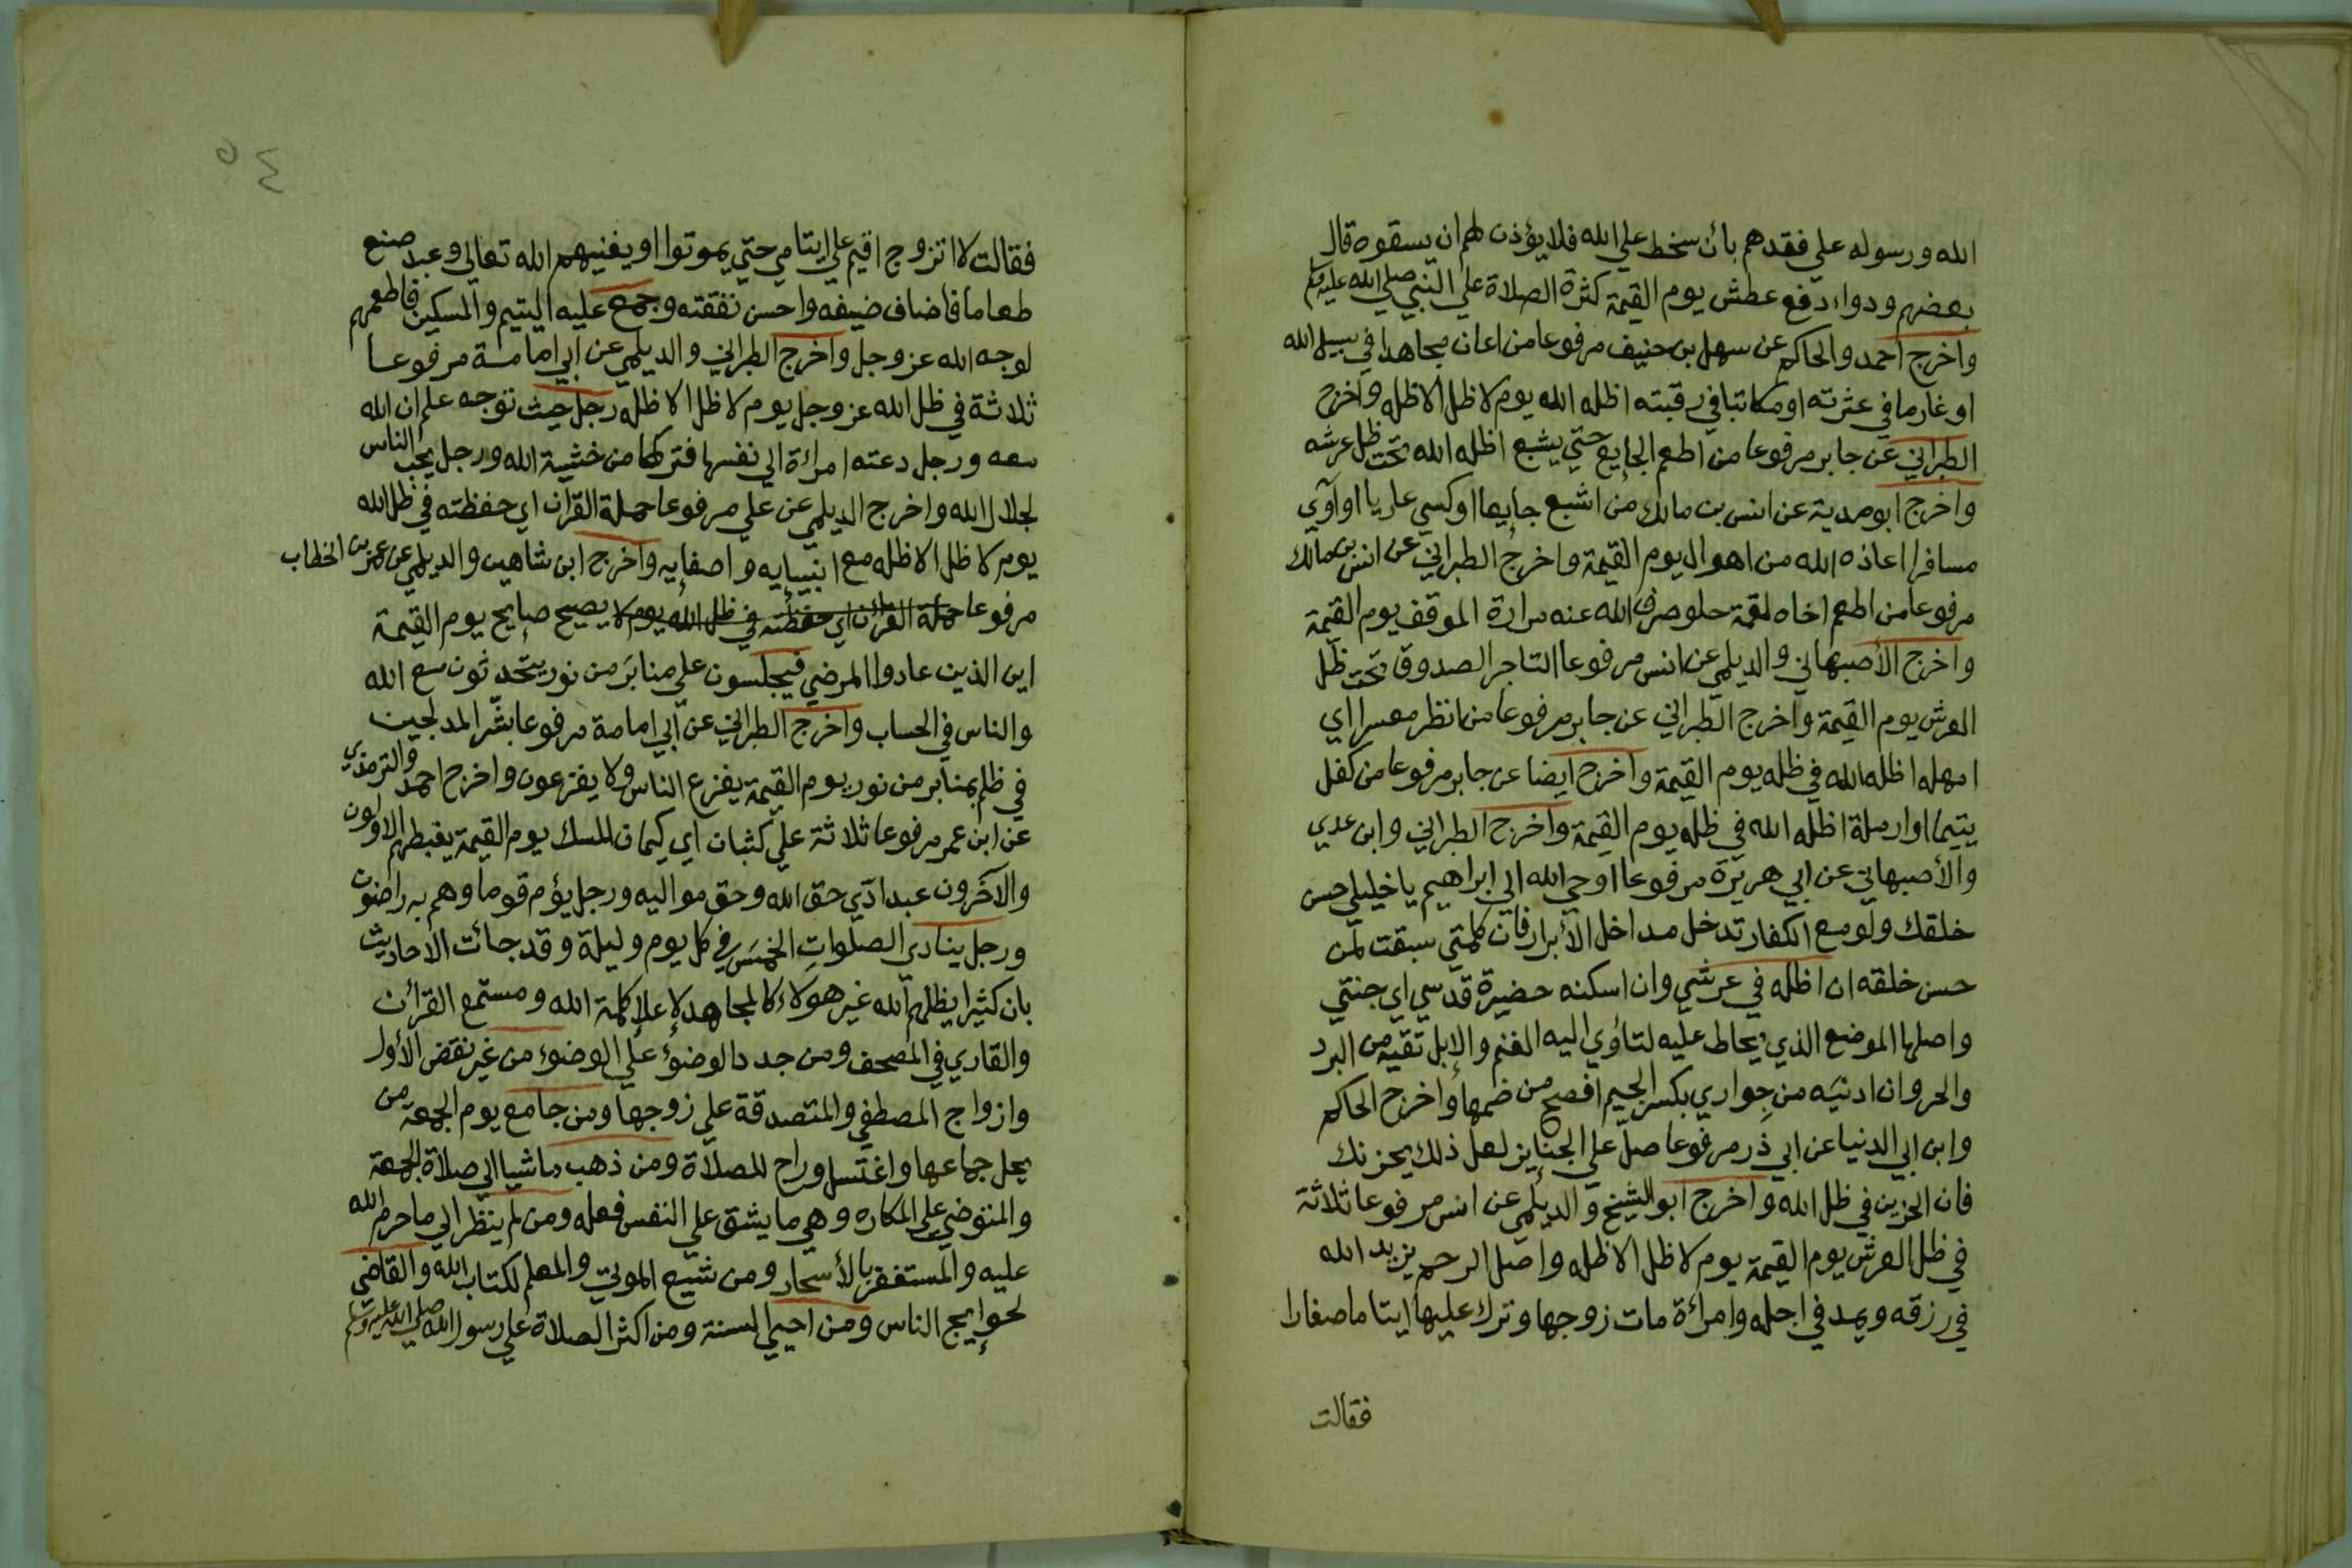 الله ورسوله علي فقدهم بأن سخط علي الله فلا يؤذن لهم ان يسقوه قال
بعضهم ودواء دفع عطش يوم القيمة كثرة الصلاة علي النبي صلي الله عليه وسلم
واخرج احمد والحاكم عن سهل بن حنيف مرفوعا من اعان مجاهدا في سبيل الله
او غارما في عثرته او مكاتبا في رقبته اظله الله يوم لا ظل الا ظله واخرج
الطبراني عن جابر مرفوعا من اطعم الجايع حتي يشبع اظله الله تحت ظل عرشه
واخرج ابو هدية عن انس بن مالك من اشبع جايعا او كسي عاريا او آوي
مسافرا اعاذه الله من اهوال يوم القيمة واخرج الطبراني عن انس بن مالك
مرفوعا من اطعم اخاه لقمة حلو صرف الله عنه مرارة الموقف يوم القيمة
واخرج الأصبهاني والديلمي عن انس مرفوعا التاجر الصدوق تحت ظل
العرش يوم القيمة واخرج الطبراني عن جابر مرفوعا من انظر معسرا اي
امهله اظله الله في ظله يوم القيمة واخرج ايضا عن جابر مرفوعا من كفل
يتيما او ارملة اظله الله في ظله يوم القيمة واخرج الطبراني وابن عدي
والأصبهاني عن ابي هريرة مرفوعا اوحي الله الي ابراهيم يا خليلي حسن
خلقك ولو مع الكفار تدخل مداخل الأبرار فان كلمتي سبقت لمن
حسن خلقه ان اظله في عرشي وان اسكنه حضيرة قدسي اي جنتي
واصلها الموضع الذي يحاط عليه لتأوي اليه الغنم والإبل تقيه من البرد
والحر وان ادنيه من جواري بكسر الجيم افصح من ضمها واخرج الحاكم
وابن ابي الدنيا عن ابي ذر مرفوعا صلّ علي الجنايز لعل ذلك يحزنك
فان الحزين في ظل الله واخرج ابو الشيخ والديلمي عن انس مرفوعا ثلاثة
في ظل العرش يوم القيمة يوم لا ظل الا ظله واصل الرحم يزيد الله
في رزقه ويمد في اجله وامرأة مات زوجها وترك عليها ايتاما صغارا
فقالت
٥٤
فقالت لا اتزوج اقيم علي ايتامي حتي يموتوا او يغنيهم الله تعالي وعبد صنع
طعاما فاضاف ضيفه واحسن نفقته وجمع عليه اليتيم والمسكين فاطعمهم
لوجه الله عز وجل واخرج الطبراني والديلمي عن ابي امامة مرفوعا
ثلاثة في ظل الله عز وجل يوم لا ظل الا ظله رجل حيث توجه علم ان الله
معه ورجل دعته امراءة الي نفسها فتركها من خشية الله ورجل يحب الناس
لجلال الله واخرج الديلمي عن علي مرفوعا حملة القرآن اي حفظته في ظل الله
يوم لا ظل الا ظله مع انبيايه واصفايه واخرج ابن شاهين والديلمي عن عمر بن الخطاب
مرفوعا حملة القرآن اي حفظته في ظل الله يوم لا يصيح صايح يوم القيمة
اين الذين عادوا المرضي فيجلسون علي منابر من نور يتحدثون مع الله
والناس في الحساب واخرج الطبراني عن أبي امامة مرفوعا بشّر المدلجين
في ظلم بمنابر من نور يوم القيمة يفزع الناس ولا يفزعون واخرج احمد والترمذي
عن ابن عمر مرفوعا ثلاثة علي كثبان اي كيمان المسك يوم القيمة يغبطهم الاولون
والآخرون عبد ادّي حق الله وحق مواليه ورجل يؤم قوما وهم به راضون
ورجل ينادي الصلوات الخمس في كل يوم وليلة وقد جائت الاحاديث
بان كثيرا يظلهم الله غير هولاء كالمجاهد لإعلاء كلمة الله ومستمع القرأن
والقاري في المصحف ومن جدد الوضوء علي الوضوء من غير نقض الأول
وازواج المصطفي والمتصدقة علي زوجها ومن جامع يوم الجمعة من
يحل جماعها واغتسل وراح للصلاة ومن ذهب ماشيا الي صلاة الجمعة
والمتوضي علي المكاره وهي ما يشق علي النفس فعله ومن لم ينظر الي ما حرم الله
عليه والمستغفر بالأسحار ومن شيع الموتي والمعلم لكتاب الله والقاضي
لحوايج الناس ومن احيي السنة ومن اكثر الصلاة علي رسول الله صلي الله عليه وسلم